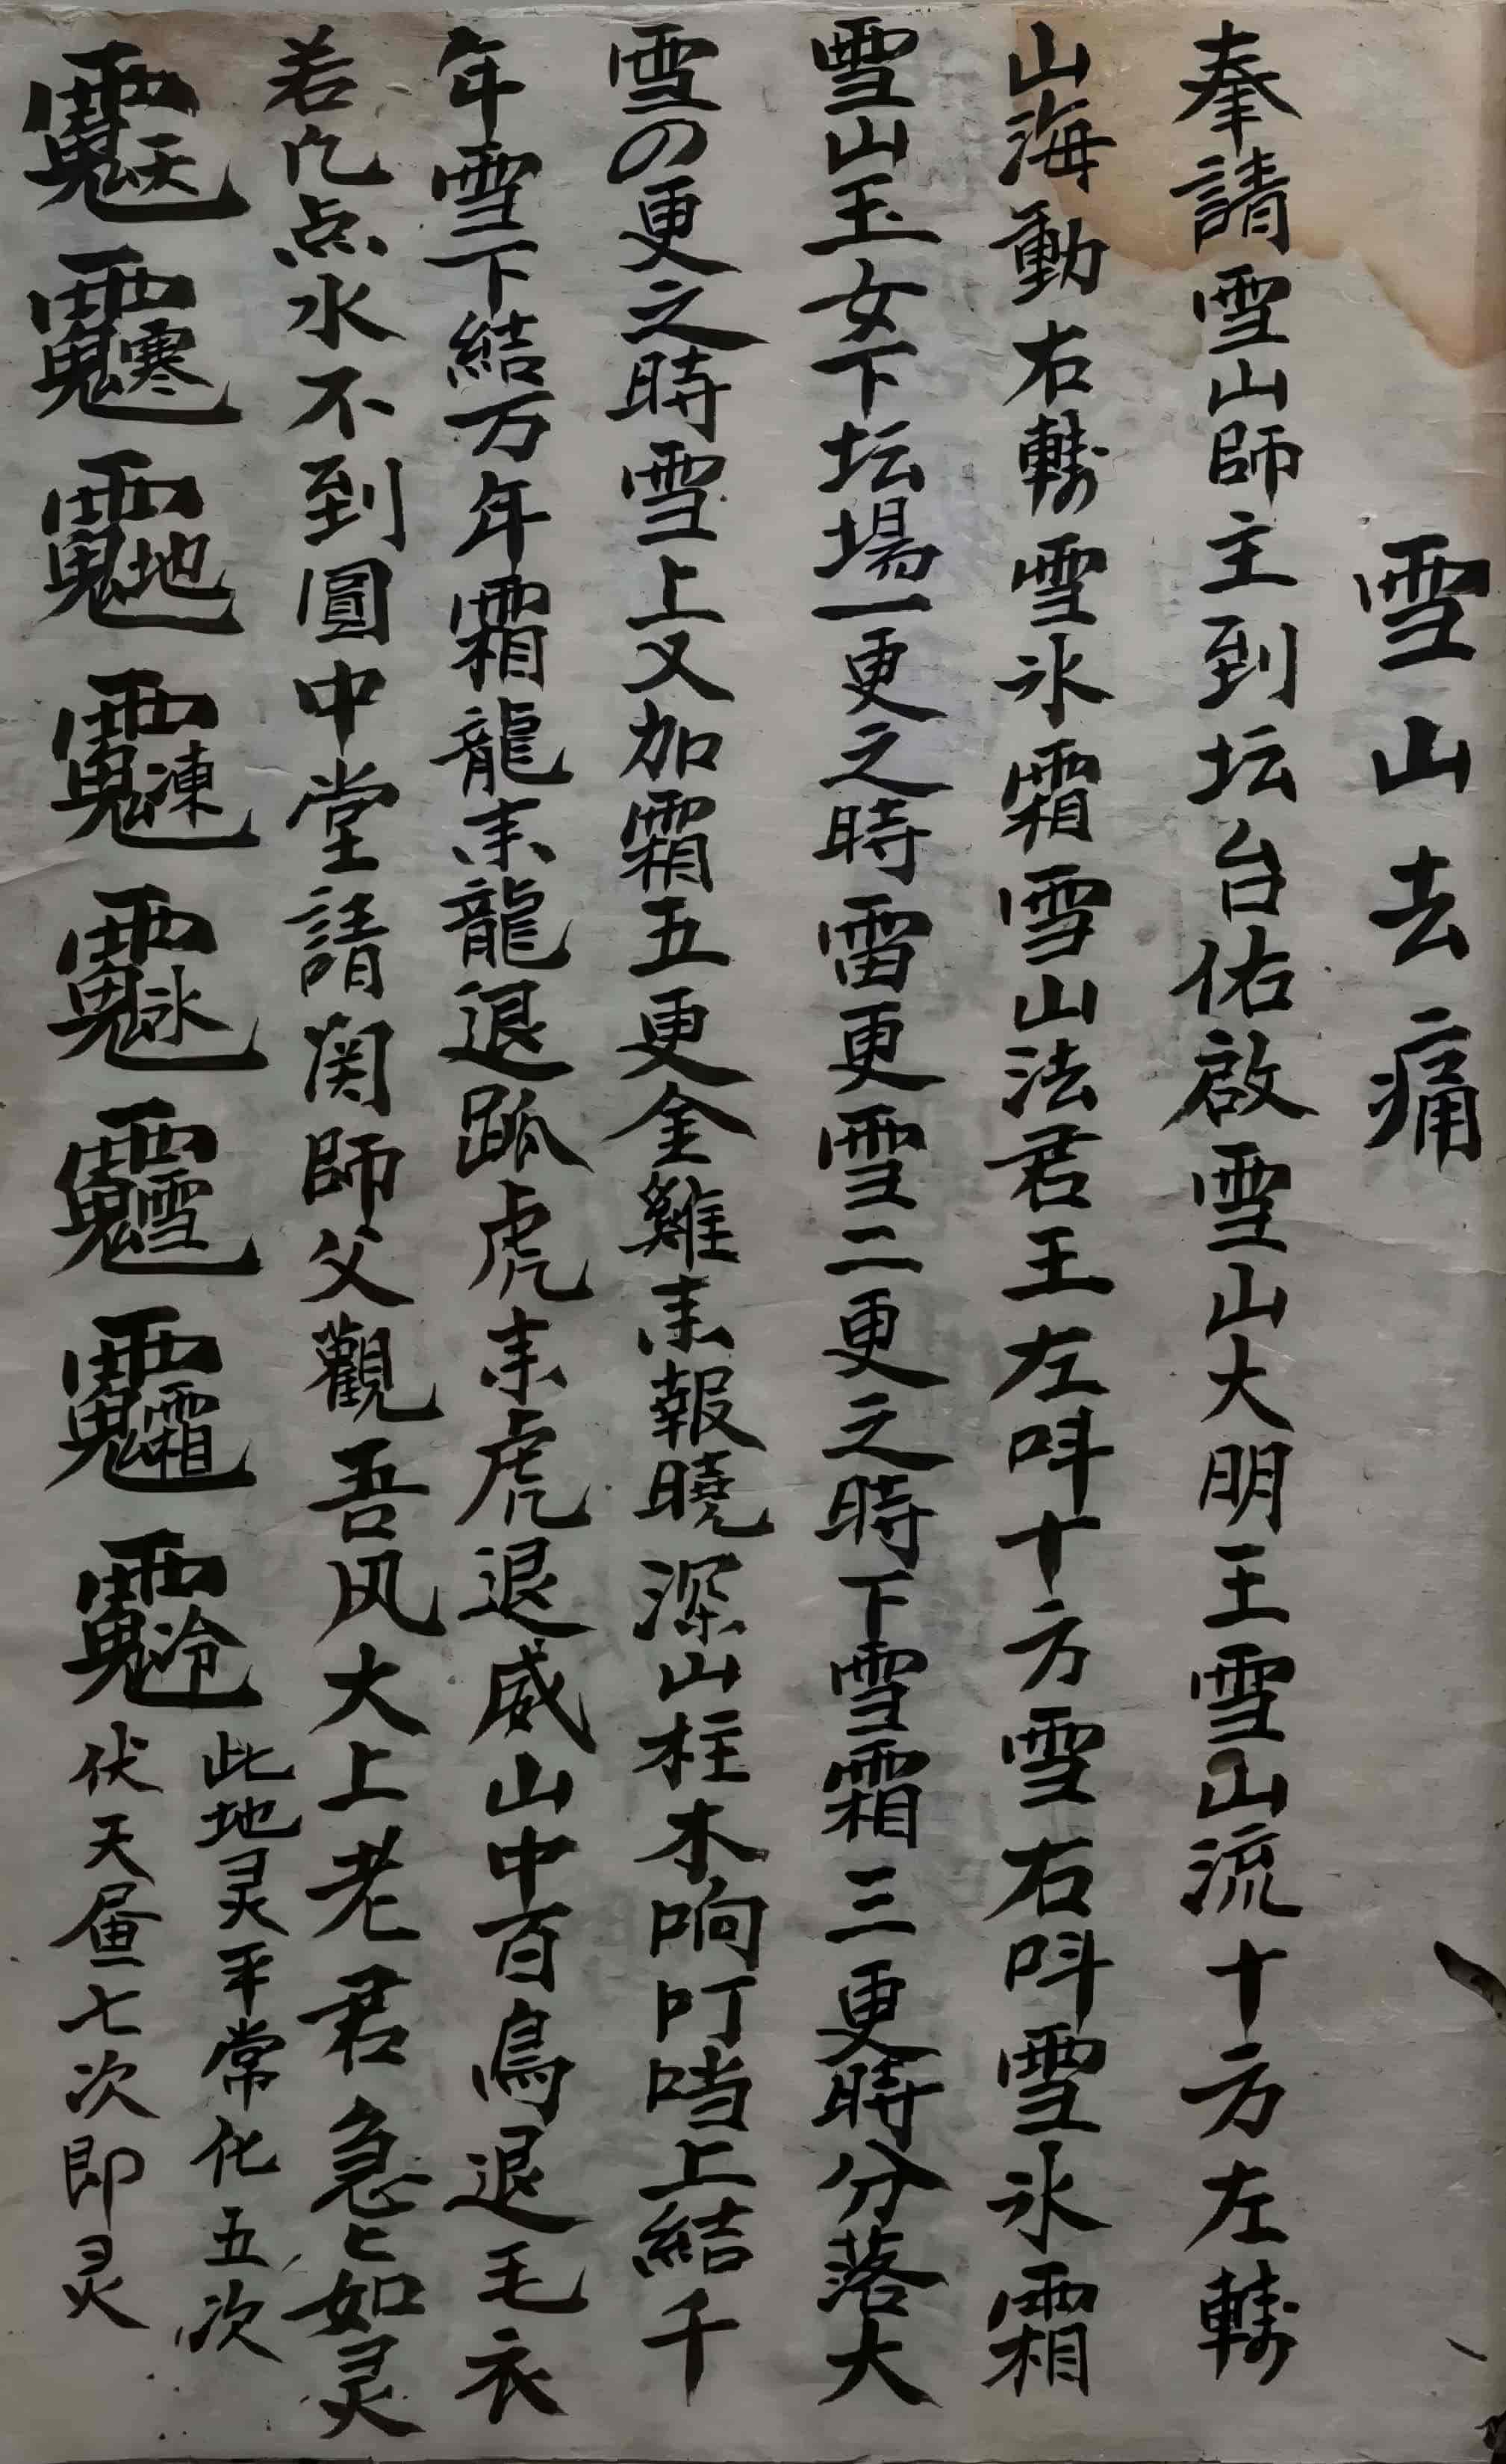 雪山去痛
奉請雪山師主到坛台佑啟雪山大明王雪山流十方左轉
山海動右轉雪氷霜雪山法君王左呌十方雪右呌雪氷霜
雪山玉女下坛場一更之時雷更雪二更之時下雪霜三更時分落大
雪の更之時雪上又加霜五更金雞耒報曉深山柱木响叮噹上結千
年雪下結万年霜龍耒龍退跡虎耒虎退威山中百鳥退毛衣
若凡点水不到圓中堂請閔師父觀吾风大上老君急〻如灵
此地灵平常化五次
伏天屆七次即灵